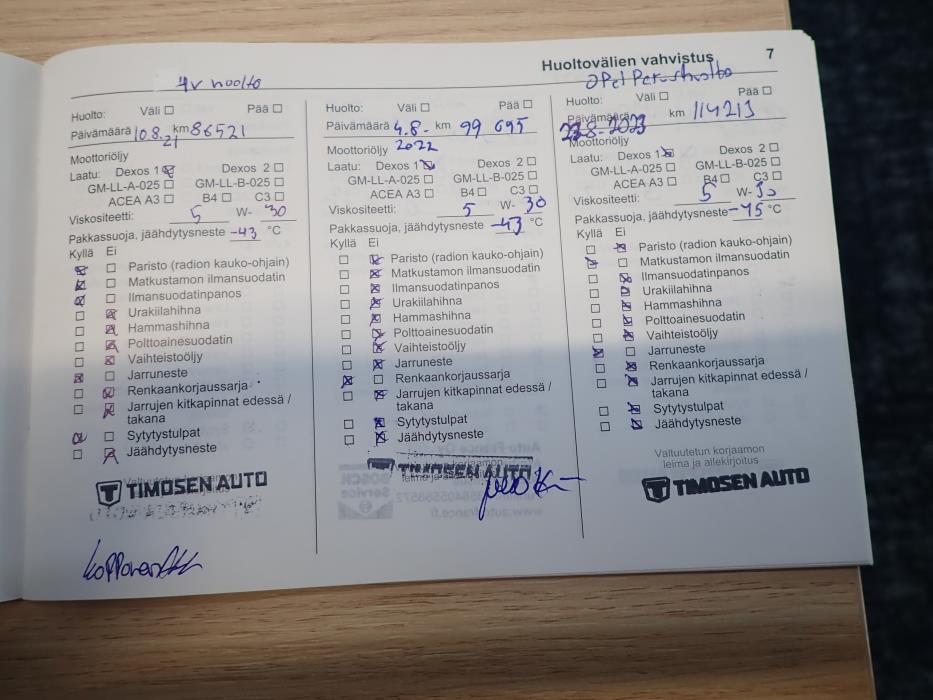 Huoltovälien vahvistus 7
4v huolto
Huolto: Väli ☐ Pää ☐
Päivämäärä 10.8.21 km 86521
Moottoriöljy
Laatu: Dexos 1 ☒ Dexos 2 ☐
GM-LL-A-025 ☐ GM-LL-B-025 ☐
ACEA A3 ☐ B4 ☐ C3 ☐
Viskositeetti: 5 W- 30
Pakkassuoja, jäähdytysneste -43 °C
Kyllä Ei
☒ ☐ Paristo (radion kauko-ohjain)
☒ ☐ Matkustamon ilmansuodatin
☒ ☐ Ilmansuodatinpanos
☐ ☒ Urakiilahihna
☐ ☒ Hammashihna
☐ ☒ Polttoainesuodatin
☐ ☒ Vaihteistoöljy
☒ ☐ Jarruneste
☐ ☒ Renkaankorjaussarja
☐ ☒ Jarrujen kitkapinnat edessä /
takana
☒ ☐ Sytytystulpat
☐ ☒ Jäähdytysneste
TIMOSEN AUTO
Huolto: Väli ☐ Pää ☐
Päivämäärä 4.8.- km 99 695
Moottoriöljy 2022
Laatu: Dexos 1 ☒ Dexos 2 ☐
GM-LL-A-025 ☐ GM-LL-B-025 ☐
ACEA A3 ☐ B4 ☐ C3 ☐
Viskositeetti: 5 W- 30
Pakkassuoja, jäähdytysneste -43 °C
Kyllä Ei
☐ ☒ Paristo (radion kauko-ohjain)
☐ ☒ Matkustamon ilmansuodatin
☐ ☒ Ilmansuodatinpanos
☐ ☒ Urakiilahihna
☐ ☒ Hammashihna
☐ ☒ Polttoainesuodatin
☐ ☒ Vaihteistoöljy
☐ ☒ Jarruneste
☒ ☐ Renkaankorjaussarja
☐ ☒ Jarrujen kitkapinnat edessä /
takana
☐ ☒ Sytytystulpat
☐ ☒ Jäähdytysneste
TIMOSEN AUTO
leima ja
Opel Perushuolto
Huolto: Väli ☐ Pää ☐
Päivämäärä 23.8-2023 km 114213
Moottoriöljy
Laatu: Dexos 1 ☒ Dexos 2 ☐
GM-LL-A-025 ☐ GM-LL-B-025 ☐
ACEA A3 ☐ B4 ☐ C3 ☐
Viskositeetti: 5 W- 30
Pakkassuoja, jäähdytysneste -45 °C
Kyllä Ei
☐ ☒ Paristo (radion kauko-ohjain)
☒ ☐ Matkustamon ilmansuodatin
☐ ☒ Ilmansuodatinpanos
☐ ☒ Urakiilahihna
☐ ☒ Hammashihna
☐ ☒ Polttoainesuodatin
☐ ☒ Vaihteistoöljy
☒ ☐ Jarruneste
☐ ☒ Renkaankorjaussarja
☐ ☒ Jarrujen kitkapinnat edessä /
takana
☐ ☒ Sytytystulpat
☐ ☒ Jäähdytysneste
Valtuutetun korjaamon
leima ja allekirjoitus
TIMOSEN AUTO